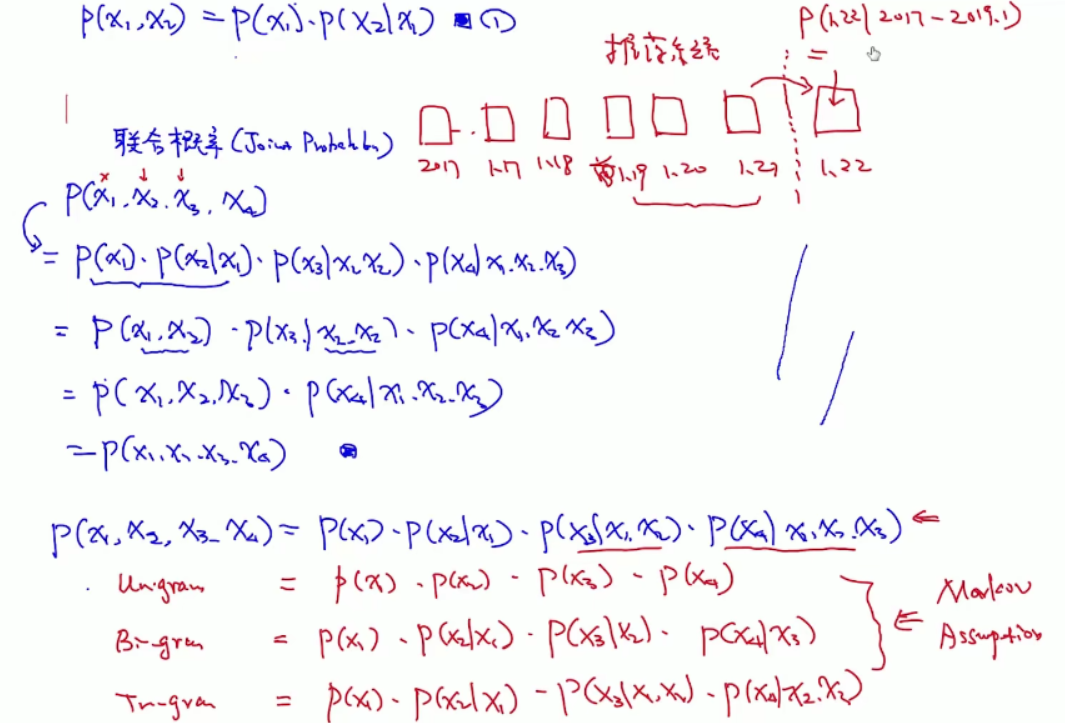 p(x₁,x₂) = p(x₁)·p(x₂|x₁) ①
p(1.22|2017-2019.1)
=
推荐系统
联合概率(Joint Probability)
2017 1.17 1.18 1.19 1.20 1.21 1.22
p(x₁.x₂.x₃.x₄)
= p(x₁)·p(x₂|x₁)·p(x₃|x₁x₂)·p(x₄|x₁.x₂.x₃)
= p(x₁,x₂)·p(x₃|x₁.x₂)·p(x₄|x₁.x₂x₃)
= p(x₁,x₂,x₃)·p(x₄|x₁.x₂.x₃)
= p(x₁.x₂.x₃.x₄)
p(x₁,x₂,x₃.x₄) = p(x₁)·p(x₂|x₁)·p(x₃|x₁,x₂)·p(x₄|x₁,x₂.x₃) ⇐
Unigram = p(x)·p(x₂)·p(x₃)·p(x₄)
Bi-gram = p(x₁)·p(x₂|x₁)·p(x₃|x₂)·p(x₄|x₃)
Tri-gram = p(x₁)·p(x₂|x₁)-p(x₃|x₁,x₂)·p(x₄|x₂.x₃)
⇐ Markov
Assumption